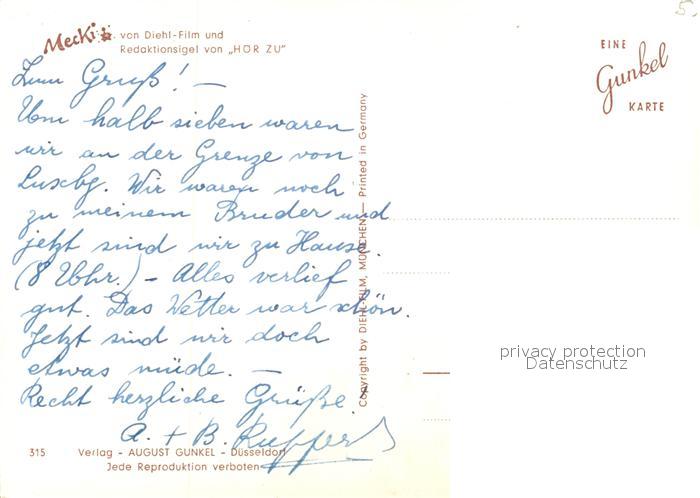 Mecki von Diehl-Film und
Redaktionsigel von „HÖR ZU"
5.
EINE
Gunkel
KARTE
Zum Gruß! —
Um halb sieben waren
wir an der Grenze von
Luxbg. Wir waren noch
zu meinem Bruder und
jetzt sind wir zu Hause.
(8 Uhr.) — Alles verlief
gut. Das Wetter war schön.
Jetzt sind wir doch
etwas müde. —
Recht herzliche Grüße.
A. + B.
Copyright by DIEHL-FILM, MÜNCHEN — Printed in Germany
privacy protection
Datenschutz
315 Verlag - AUGUST GUNKEL - Düsseldorf
Jede Reproduktion verboten